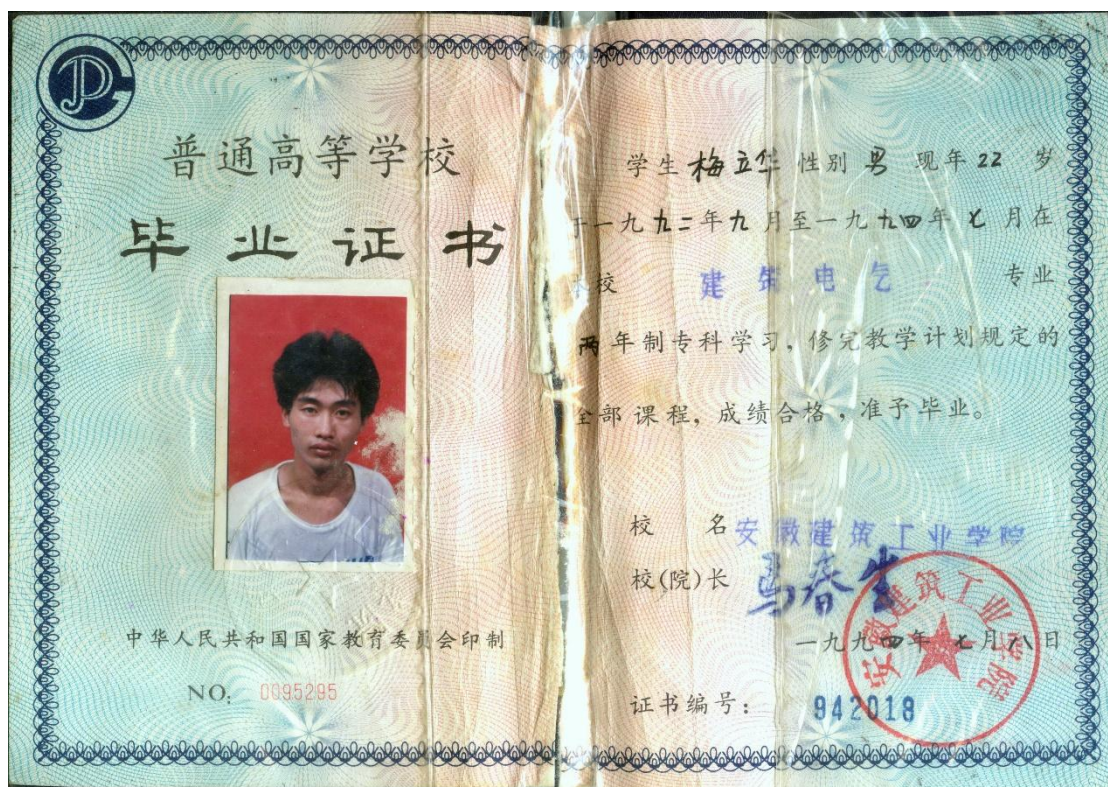 普通高等学校
毕业证书
中华人民共和国国家教育委员会印制
NO: 0095295
学生 梅立华 性别 男 现年 22 岁
于一九九二年九月至一九九四年七月在
本校 建筑电气 专业
两年制专科学习，修完教学计划规定的
全部课程，成绩合格，准予毕业。
校 名 安徽建筑工业学院
校(院)长 马春生
一九九四年七月八日
证书编号： 942018
安徽建筑工业学院